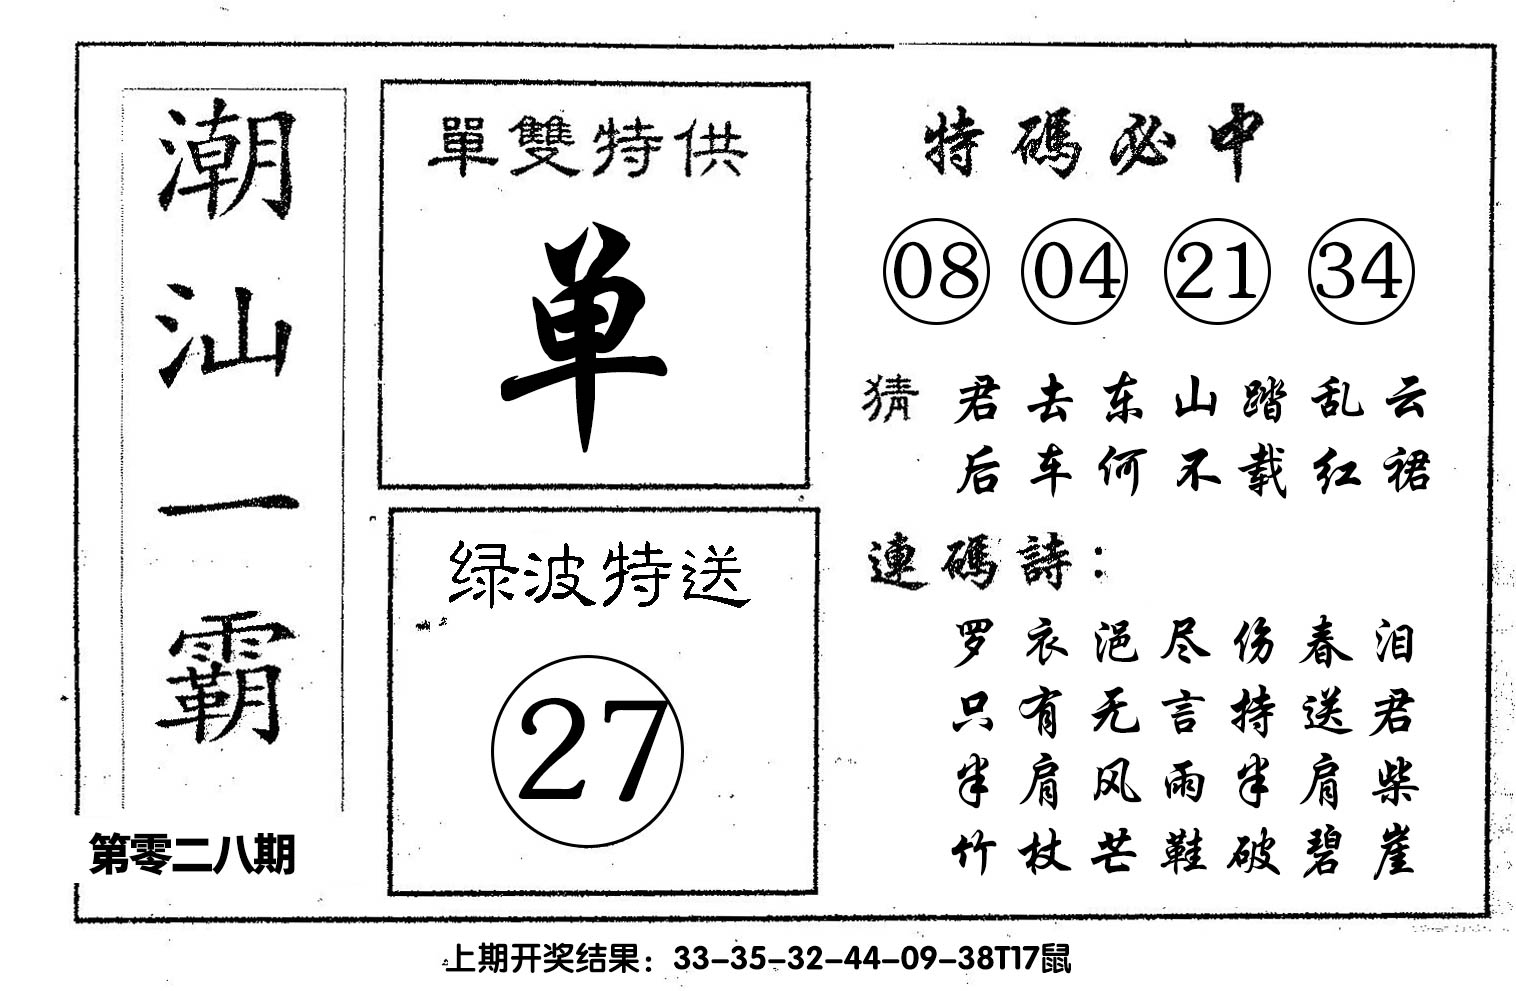 潮汕一霸
第零二八期
單雙特供
单
绿波特送
27
特碼必中
08 04 21 34
猜 君去东山踏乱云
后车何不载红裙
連碼詩：
罗衣浥尽伤春泪
只有无言持送君
半肩风雨半肩柴
竹杖芒鞋破碧崖
上期开奖结果：33-35-32-44-09-38T17鼠